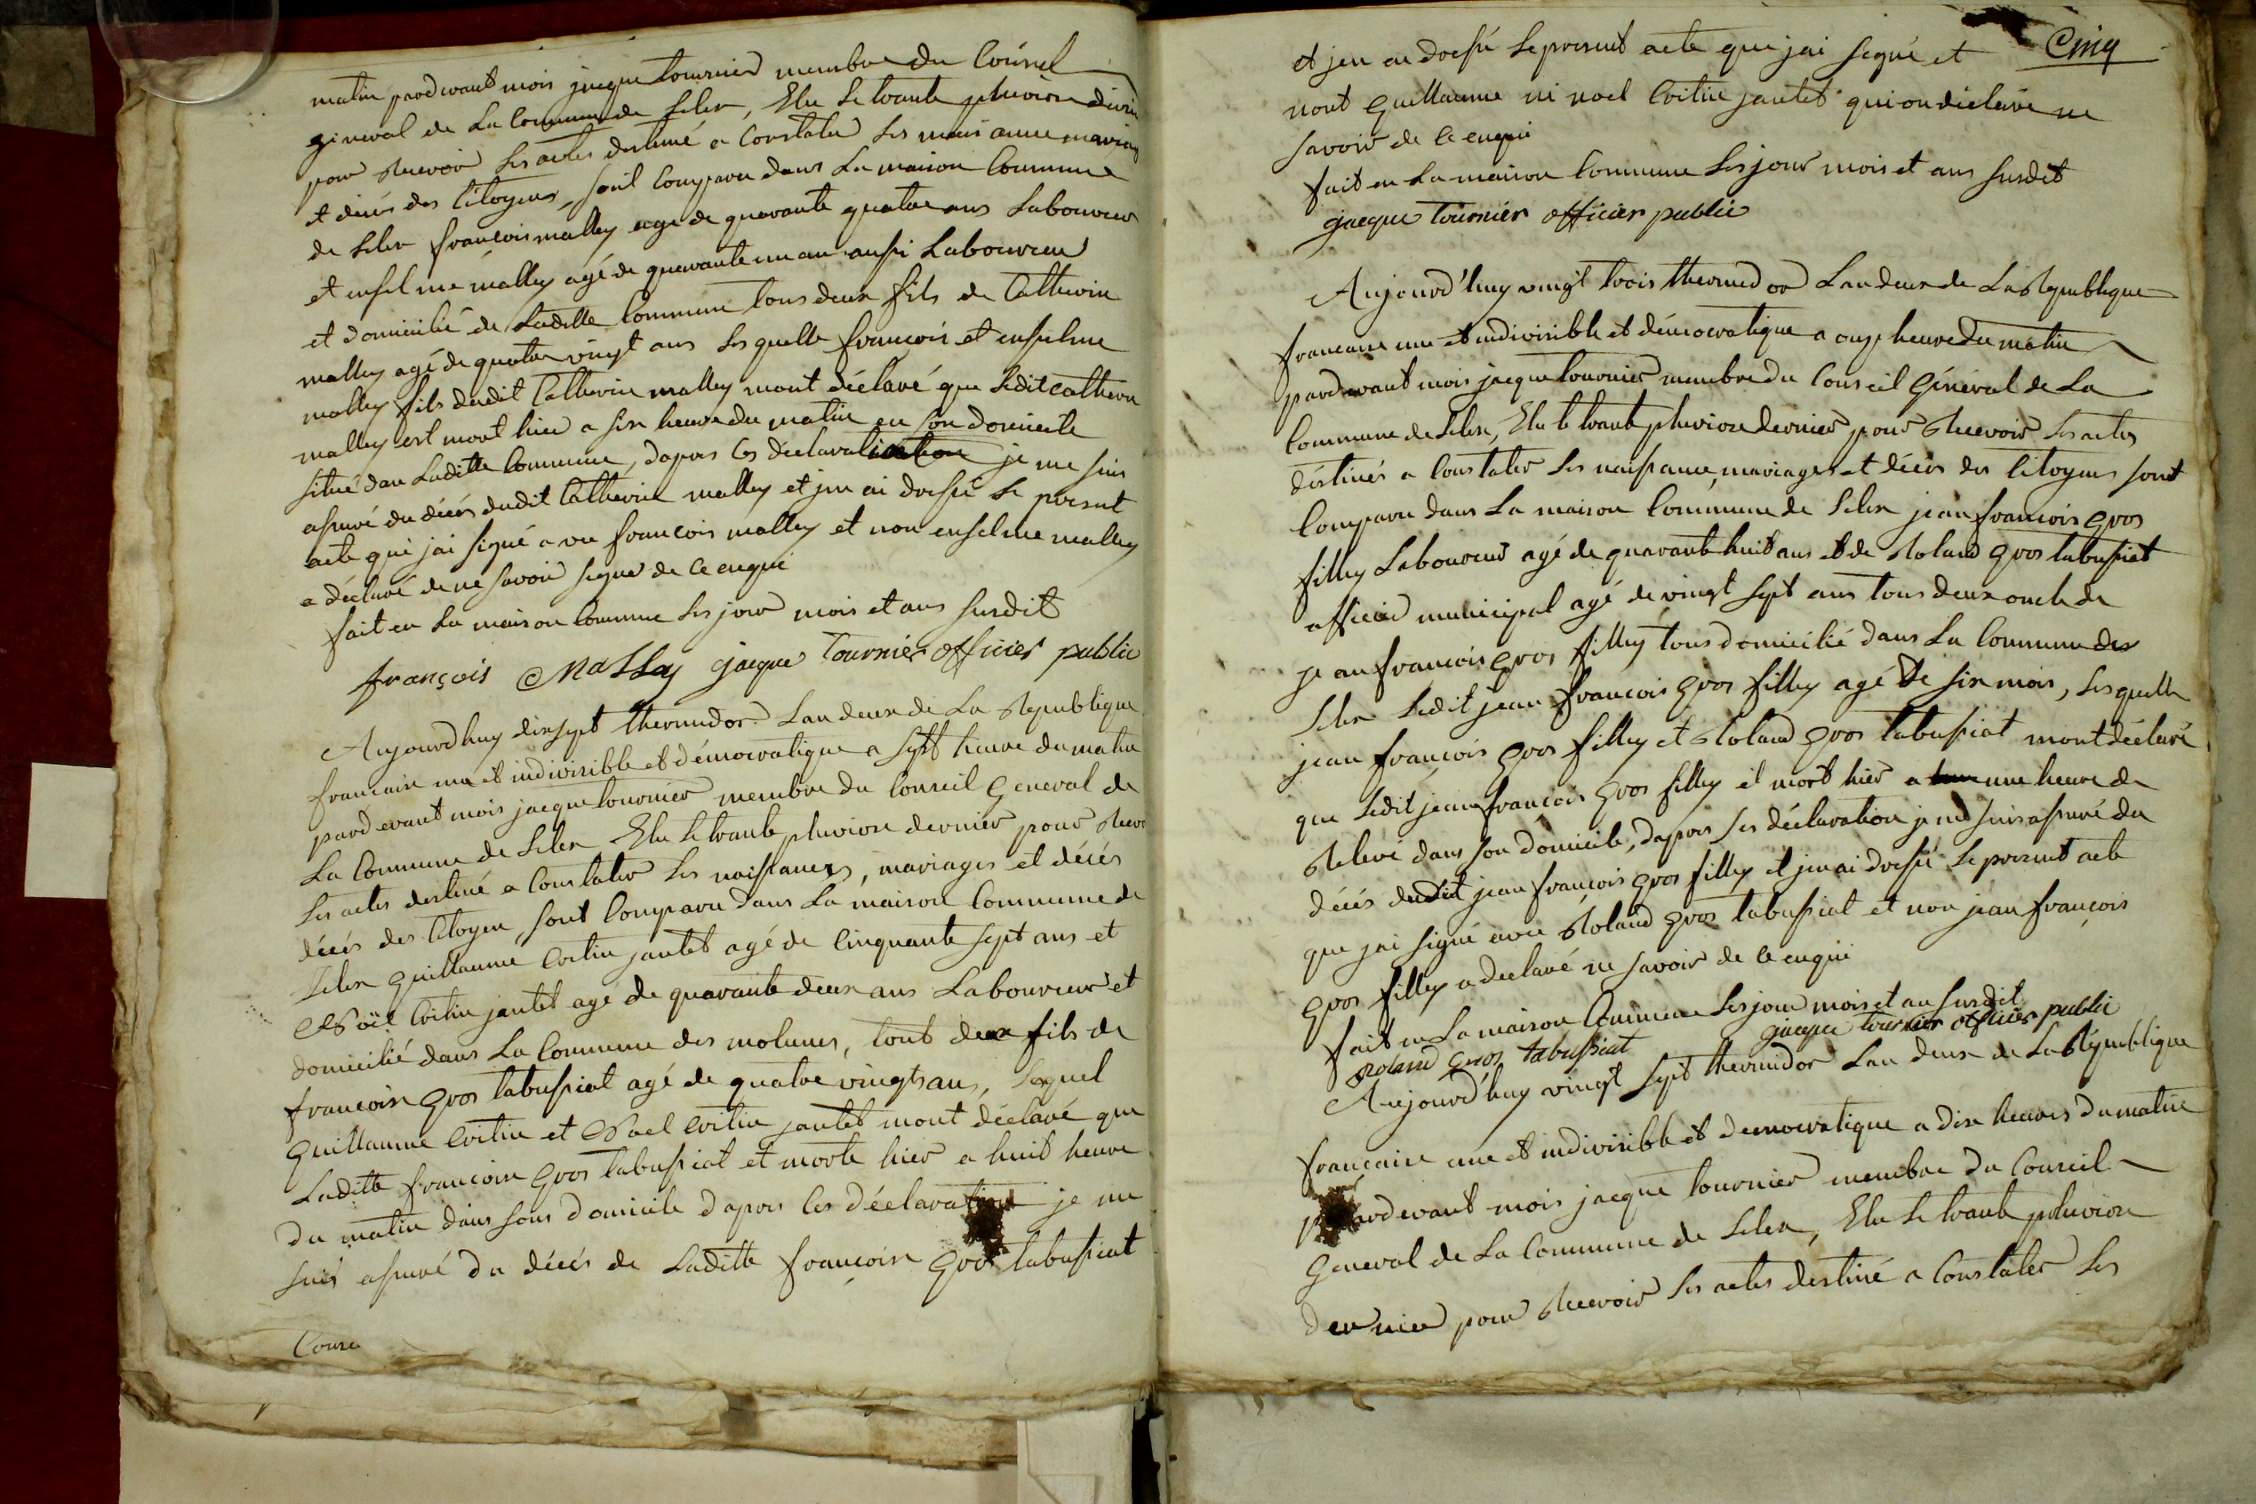 matin pardevant mois jacque tournier membre du Conseil
general de la Commune de Selex, Elu le trante pluviose
pour Recevoir les actes destiné a Constater les
et décés des Citoyens, sont Comparu dans la maison Commune
de Selex françois malley agé de quarante quatre ans Laboureur
et enselme malley agé de quarante un an aussi Laboureur
et domicilié de Ladite Commune tous deux fils de Catherin
malley agé de quatre vingt ans lesquelle françois et enselme
malley fils dudit Catherin malley mont déclaré que ledit Catherin
malley est mort hier a six heure du matin en son domicile
situé dans Ladite Commune, dapres les je me suis
assuré du décés dudit Catherin malley et jen ai dressé le present
acte qui jai signé avec françois malley et non enselme malley
a déclaré de ne savoir signe de ce enqui
fait en la maison Commune les jour mois et ans susdit
françois Malley jacque Tournier officier public
Aujourdhuy dixsept thermidor Landeux de La Republique
francaise une et indivisible et démocratique a sept heure du matin
pardevant mois jacque tournier membre du Conseil General de
La Commune de Selex Elu le trante pluviose dernier pour
les actes destiné a Constater les naissances, mariages et décés
décés des Citoyen, sont Comparu dans La maison Commune de
Selex Guillaume Coitin jantet agé de Cinquante sept ans et
Noël Coitin jantet agé de quarante deux ans Laboureur et
domicilié dans La Commune des molunes, tout deux fils de
francoise gros tabussiat agé de quatre vingts ans, lequel
Guillaume Coitin et Noel Coitin jantet mont déclaré que
Ladite francoise gros tabussiat et morte hier a huit heure
du matin dans sons domicile dapres les déclaration je me
suis assuré du décés de Ladite francoise gros tabussiat
et jen ai dressé le present acte que jai signé et
Cinq
nont Guillaume ni noel Coitin jantet qui on déclaré ne
savoir de ce enqui
fait en La maison Commune les jour mois et ans susdit
jacque Tournier officier public
Aujourd'huy vingt trois thermidor Landeux de La Republique
francaise une et indivisible et démocratique a onze heure du matin
pardevant mois jacque tournier membre du Conseil Général de La
Commune de Selex, Elu le trante pluviose dernier pour Recevoir les actes
déstinés a Constater les naissance, mariages et décés des Citoyens sont
Comparu dans La maison Commune de Selex jean françois gros
filley Laboureur agé de quarante huit ans et de Roland gros tabussiat
officier municipal agé de vingt sept ans tous deux oncle de
jean françois gros filley tous domicilié dans La Commune des
Selex Ledit jean françois gros filley agé de six mois, lesquelle
jean françois gros filley et Roland gros tabussiat mont déclaré
que Ledit jean françois gros filley et mort hier a une heure de
Relevé dans son domicile, dapres les déclaration je me suis assuré du
décés dudit jean françois gros filley et jen ai dressé le present acte
que jai signé avec Roland gros tabussiat et non jean françois
gros filley a declaré ne savoir de ce enqui
fait en La maison Commune les jour mois et an susdit
Roland gros tabussiat jacque tournier officier public
Aujourd'huy vingt sept thermidor Lan deux de La République
française une et indivisible et democratique a dix heures du matin
pardevant mois jacque tournier membre du Conseil
General de La Commune de Selex, Elu le trante pluviose
dernier pour Recevoir les actes destiné a Constater les